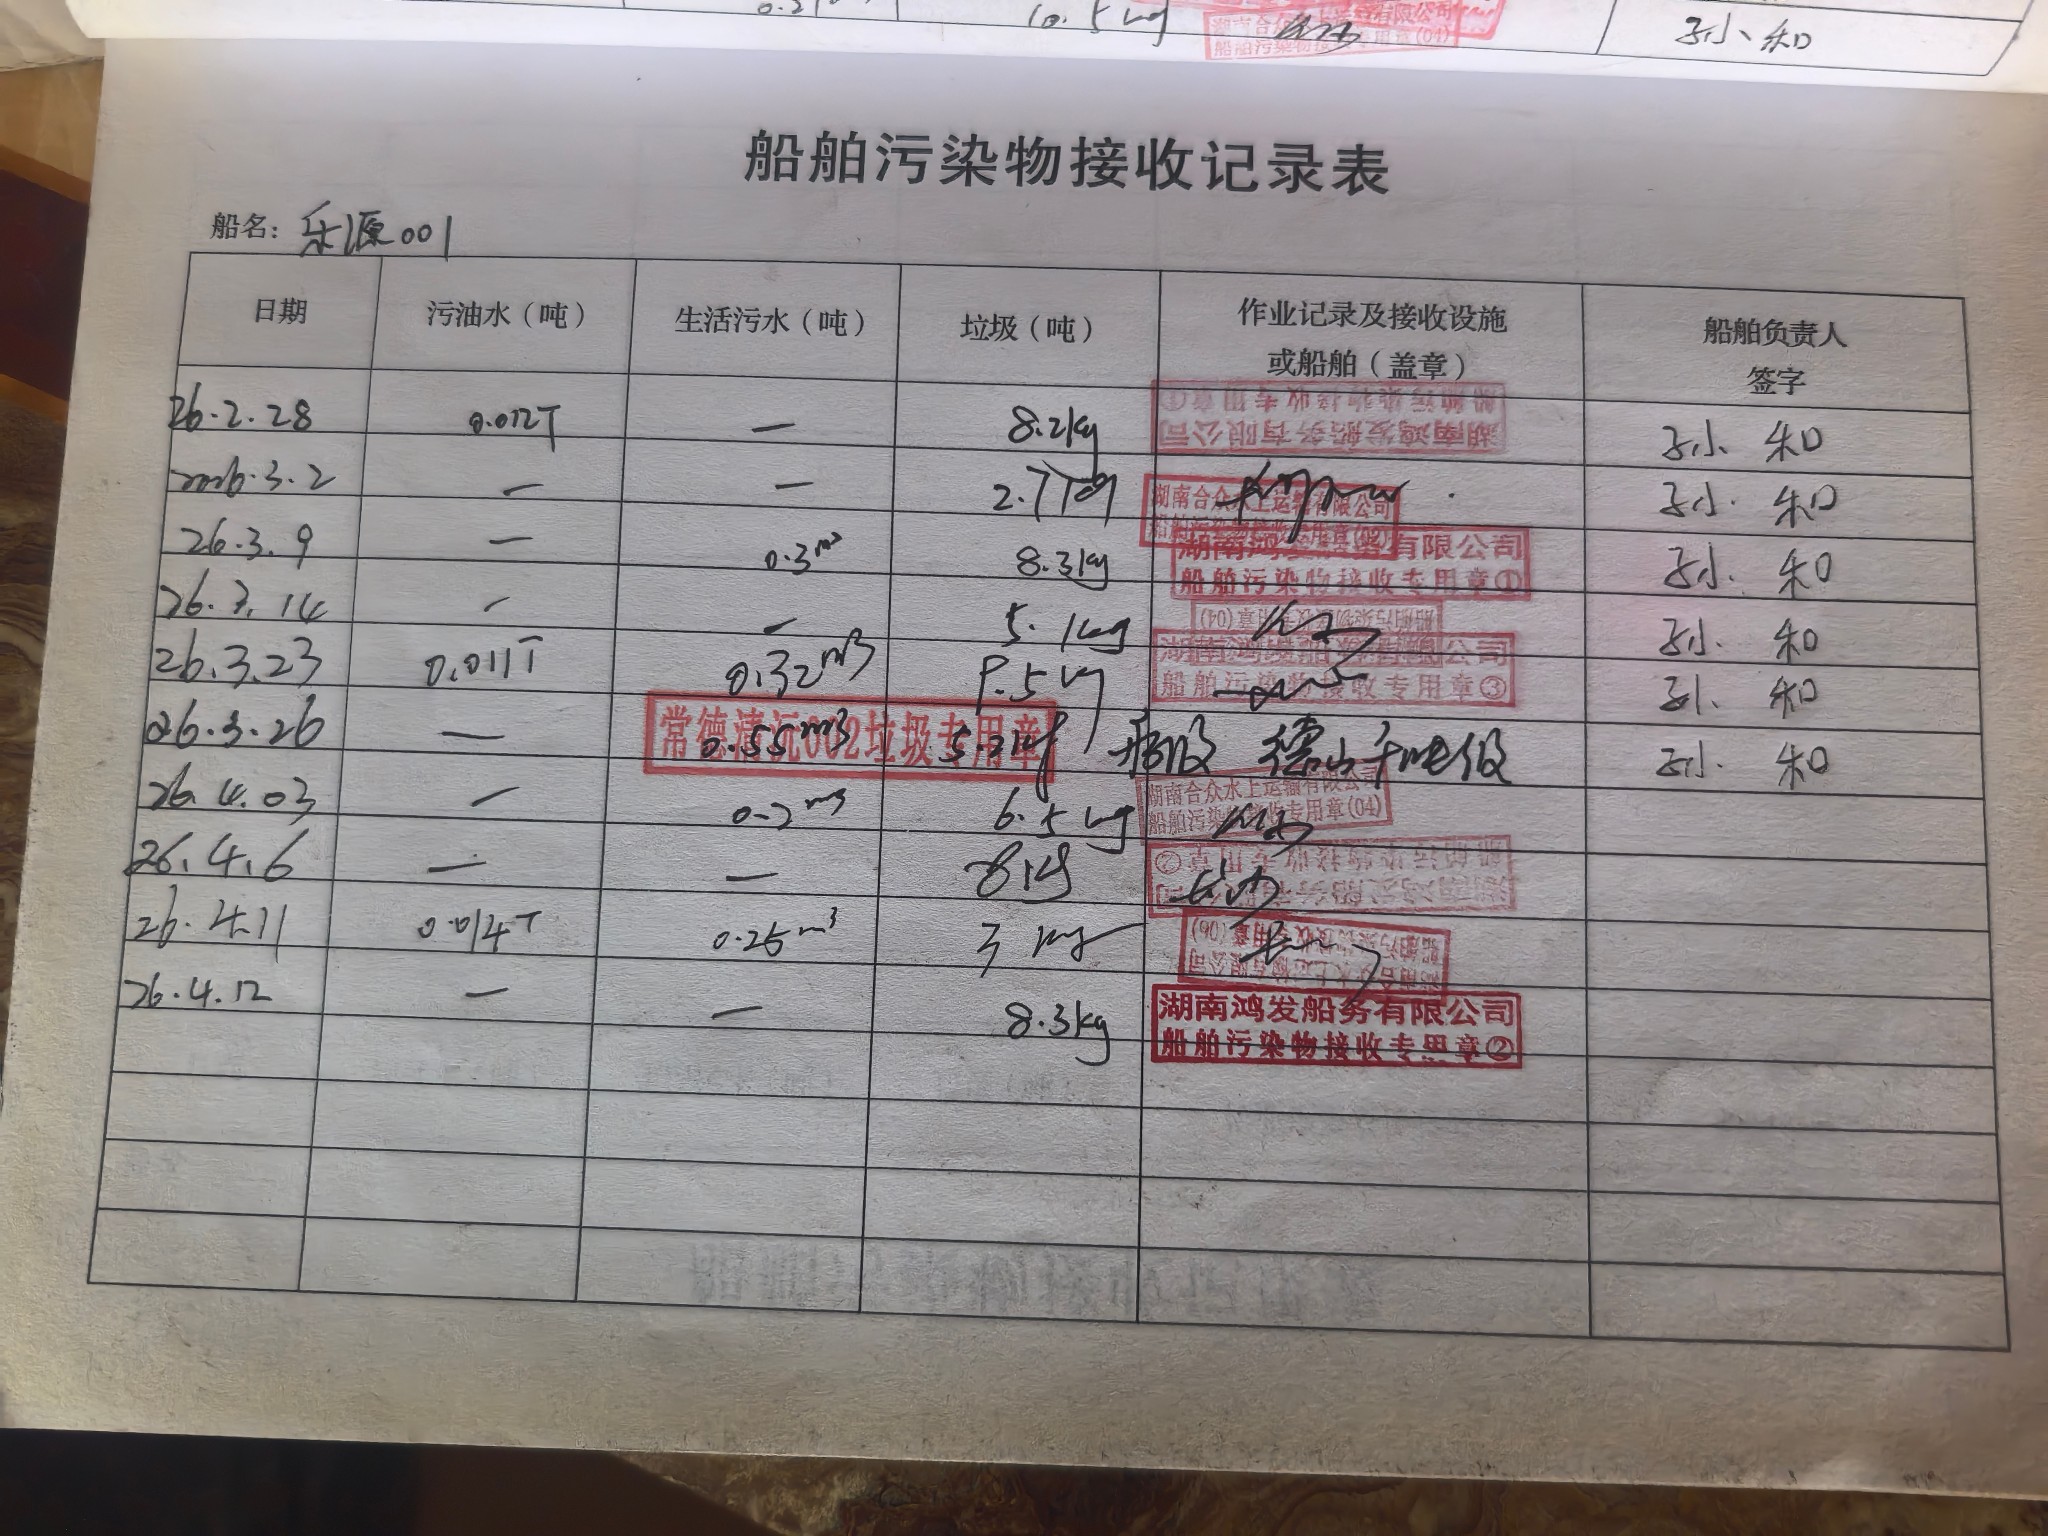 10.5kg
孙小和
船舶污染物接收记录表
船名: 乐源001
日期 污油水（吨） 生活污水（吨） 垃圾（吨） 作业记录及接收设施或船舶（盖章） 船舶负责人签字
26.2.28 0.012T — 8.2kg 湖南鸿发船务有限公司 船舶污染物接收专用章① 孙小和
2026.3.2 — — 2.7kg 湖南合众水上运输有限公司 孙小和
26.3.9 — 0.3m³ 8.3kg 湖南鸿发船务有限公司 船舶污染物接收专用章① 孙小和
26.3.14 — — 5.1kg 船舶污染物接收专用章(04) 孙小和
26.3.23 0.011T 0.32m³ 9.5kg 湖南鸿发船务有限公司 船舶污染物接收专用章③ 孙小和
26.3.26 — 0.55m³ 常德清沅002垃圾专用章 德山千吨级 孙小和
26.4.03 — 0.2m³ 6.5kg 湖南合众水上运输有限公司 船舶污染物接收专用章(04)
26.4.6 — — 湖南鸿发船务有限公司 船舶污染物接收专用章②
26.4.11 0.014T 0.25m³ 3kg 船舶污染物接收专用章(06)
26.4.12 — — 8.3kg 湖南鸿发船务有限公司 船舶污染物接收专用章②